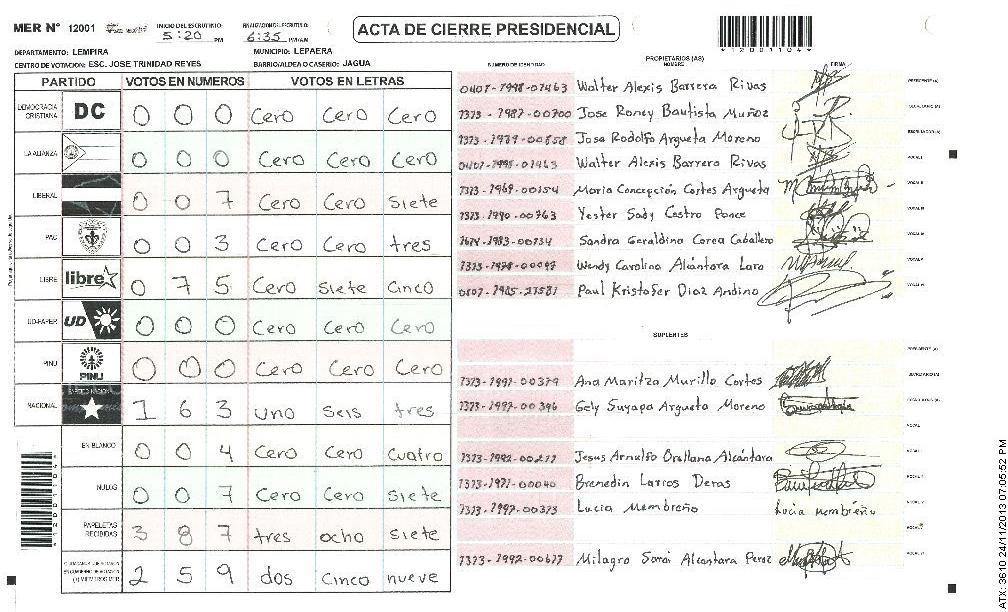 MER Nº 12001 INICIO DEL ESCRUTINIO: 5:20 PM FINALIZACION DEL ESCRUTINIO: 6:35 PM/AM
ACTA DE CIERRE PRESIDENCIAL
*12001104*
DEPARTAMENTO: LEMPIRA MUNICIPIO: LEPAERA
CENTRO DE VOTACION: ESC. JOSE TRINIDAD REYES BARRIO/ALDEA O CASERIO: JAGUA
PARTIDO VOTOS EN NUMEROS VOTOS EN LETRAS
DEMOCRACIA CRISTIANA DC 0 0 0 Cero Cero Cero
LA ALIANZA 0 0 0 Cero Cero Cero
LIBERAL 0 0 7 Cero Cero Siete
PAC 0 0 3 Cero Cero tres
LIBRE libre 0 7 5 Cero Siete Cinco
UD-FAPER UD 0 0 0 Cero Cero Cero
PINU PINU 0 0 0 Cero Cero Cero
NACIONAL 1 6 3 uno Seis tres
EN BLANCO 0 0 4 Cero Cero Cuatro
NULOS 0 0 7 Cero Cero Siete
PAPELETAS RECIBIDAS 3 8 7 tres ocho Siete
2 5 9 dos Cinco nueve
PROPIETARIOS (AS)
NUMERO DE IDENTIDAD NOMBRE FIRMA
Walter Alexis Barrera Rivas PRESIDENTE (A)
Jose Roney Bautista Muñoz SECRETARIO (A)
Jose Rodolfo Argueta Moreno ESCRUTADOR (A)
Walter Alexis Barrera Rivas VOCAL I
Maria Concepción Cortes Argueta VOCAL II
Yester Sady Castro Ponce VOCAL III
Sandra Geraldina Corea Caballero
Wendy Carolina Alcántara Lara
Paul Kristofer Diaz Andino
SUPLENTES
PRESIDENTE (A)
1323-1997-00379 Ana Maritza Murillo Cortes
Gely Suyapa Argueta Moreno
Jesus Arnulfo Orellana Alcántara
Brenedin Larios Deras
Lucia Membreño Lucia membreño
1323-1992-00677 Milagro Sarai Alcantara Perez
ATX: 3610 24/11/2013 07:05:52 PM